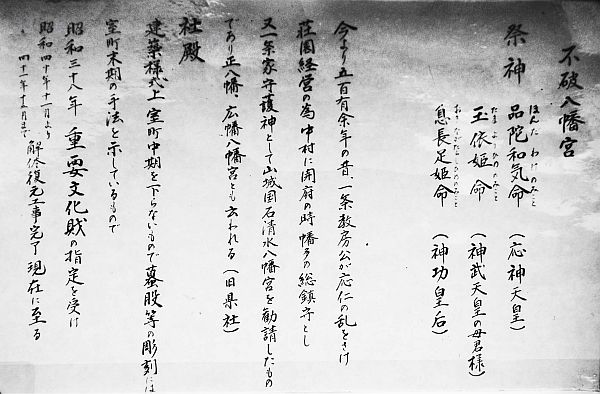 不破八幡宮
祭神 品陀和気命 (応神天皇)
ほんだ わけのみこと
玉依姫命 (神武天皇の母君様)
たま よりひめのみこと
息長足姫命 (神功皇后)
おきながたらしひめのみこと
今より五百有余年の昔、一条教房公が応仁の乱をさけ
荘園経営の為中村に開府の時幡多の総鎮守とし
又一条家守護神として山城国石清水八幡宮を勧請したもの
であり正八幡、広幡八幡宮とも云われる (旧県社)
社殿
建築様式上 室町中期を下らないもので蟇股等の彫刻には
室町末期の手法を示しているもので
昭和三十八年 重要文化財の指定を受け
昭和四十年十一月より
四十一年十二月まで 解体復元工事完了 現在に至る